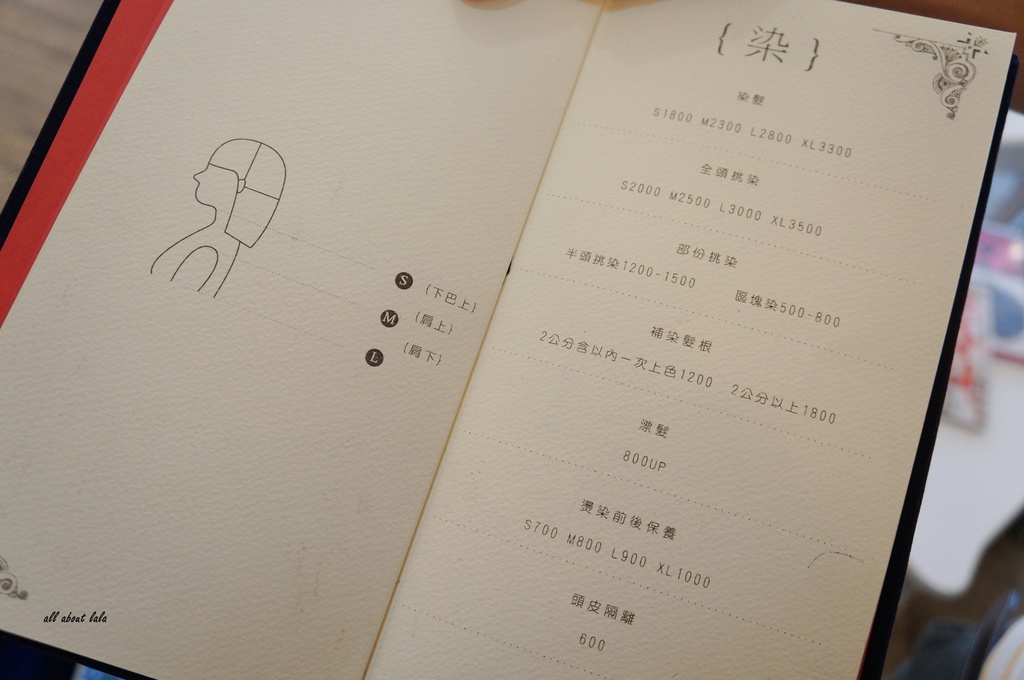 S (下巴上)
M (肩上)
L (肩下)
all about lala
{ 染 }
染髮
S1800 M2300 L2800 XL3300
全頭挑染
S2000 M2500 L3000 XL3500
部份挑染
半頭挑染1200-1500 區塊染500-800
補染髮根
2公分含以內一次上色1200 2公分以上1800
漂髮
800UP
燙染前後保養
S700 M800 L900 XL1000
頭皮隔離
600